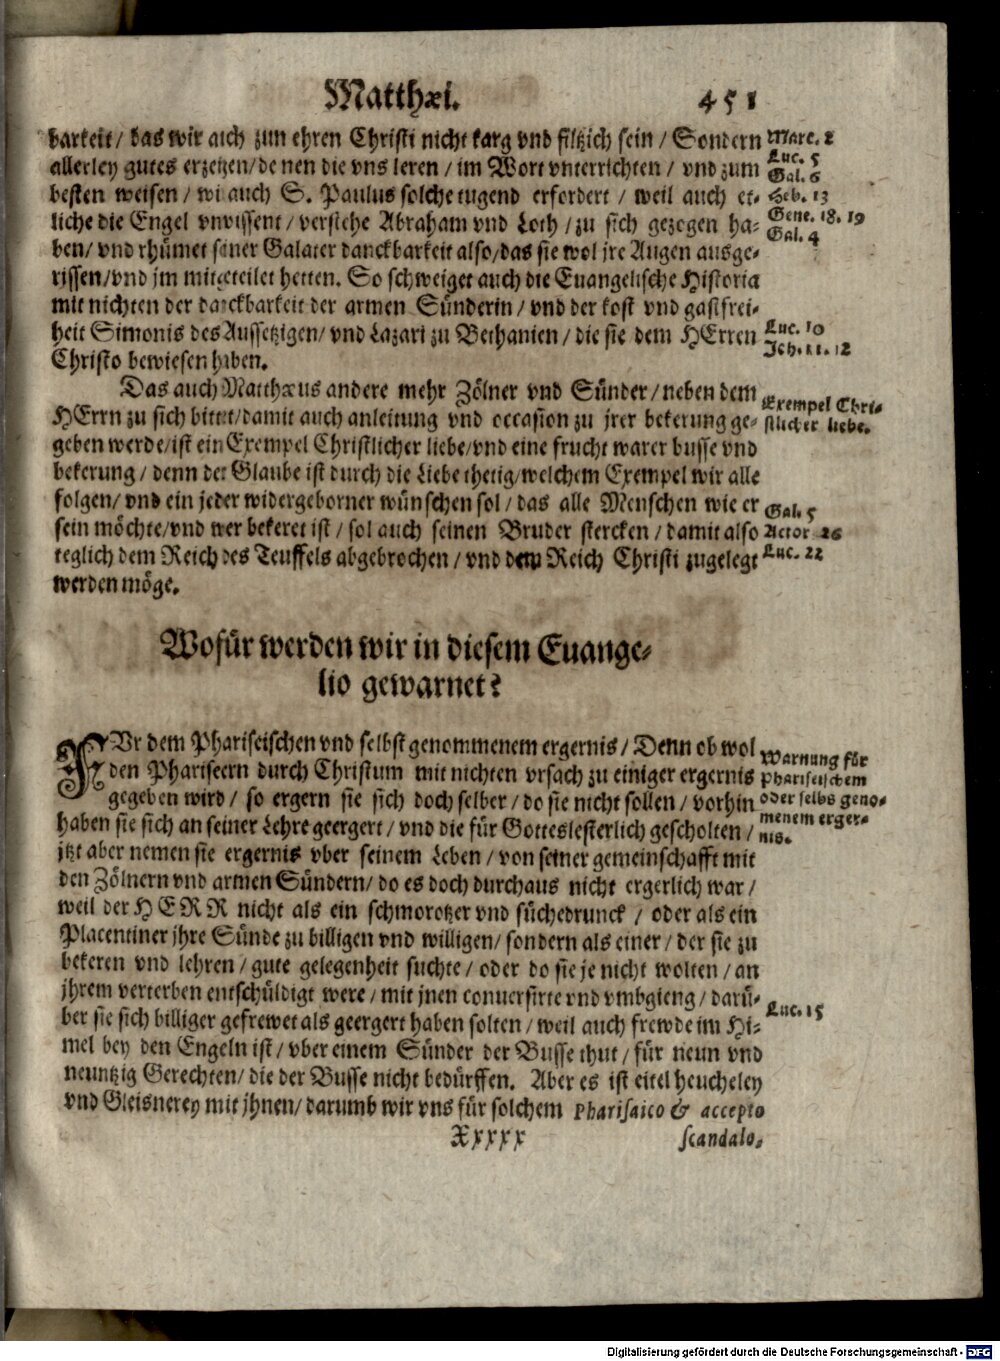 Matthæi. 451
barkeit/ das wir auch zun ehren Christi nicht karg vnd filtzich sein/ Sondern
allerley gutes erzeigen/ denen die vns leren/ im Wort vnterrichten/ vnd zum
besten weisen/ wi auch S. Paulus solche tugend erfordert/ weil auch et-
liche die Engel vnwissent/ verstehe Abraham vnd Loth/ zu sich gezogen ha-
ben/ vnd rhümet seiner Galater danckbarkeit also/ das sie wol jre Augen ausge-
rissen/ vnd jm mitgeteilet hetten. So schweiget auch die Euangelische Historia
mit nichten der danckbarkeit der armen Sünderin/ vnd der kost vnd gastfrei-
heit Simonis des Aussetzigen/ vnd Lazari zu Bethanien/ die sie dem HErren
Christo bewiesen haben.
Marc. 2
Luc. 5
Gal. 6
Heb. 13
Gene. 18. 19
Gal. 4
Luc. 10
Joh. 11. 12
Das auch Matthæus andere mehr Zölner vnd Sünder/ neben dem
HErrn zu sich bittet/ damit auch anleitung vnd occasion zu jrer bekerung ge-
geben werde/ ist ein Exempel Christlicher liebe/ vnd eine frucht warer busse vnd
bekerung/ denn der Glaube ist durch die Liebe thetig/ welchem Exempel wir alle
folgen/ vnd ein jeder widergeborner wünschen sol/ das alle Menschen wie er
sein möchte/ vnd wer bekeret ist/ sol auch seinen Bruder stercken/ damit also
teglich dem Reich des Teuffels abgebrochen/ vnd dem Reich Christi zugelegt
werden möge.
Exempel Chri-
stlicher liebe.
Gal. 5
Actor 26
Luc. 22
Wofür werden wir in diesem Euange-
lio gewarnet?
FVr dem Phariseischen vnd selbst genommenem ergernis/ Denn ob wol
den Phariseern durch Christum mit nichten vrsach zu einiger ergernis
gegeben wird/ so ergern sie sich doch selber/ do sie nicht sollen/ vorhin
haben sie sich an seiner Lehre geergert/ vnd die für Gotteslesterlich gescholten/
jtzt aber nemen sie ergernis vber seinem Leben/ von seiner gemeinschafft mit
den Zölnern vnd armen Sündern/ do es doch durchaus nicht ergerlich war/
weil der HERR nicht als ein schmorotzer vnd süchedrunck/ oder als ein
Placentiner jhre Sünde zu billigen vnd willigen/ sondern als einer/ der sie zu
bekeren vnd lehren/ gute gelegenheit suchte/ oder do sie je nicht wolten/ an
jhrem verterben entschüldigt were/ mit jnen conuersirte vnd vmbgieng/ darü-
ber sie sich billiger gefrewet als geergert haben solten/ weil auch frewde im Hi-
mel bey den Engeln ist/ vber einem Sünder der Busse thut/ für neun vnd
neuntzig Gerechten/ die der Busse nicht bedürffen. Aber es ist eitel heucheley
vnd Gleisnerey mit jhnen/ darumb wir vns für solchem Pharisaico & accepto
Warnung für
Phariseischem
oder selbs geno-
menem erger-
nis.
Luc. 15
Xxxxx scandalo,
Digitalisierung gefördert durch die Deutsche Forschungsgemeinschaft - DFG